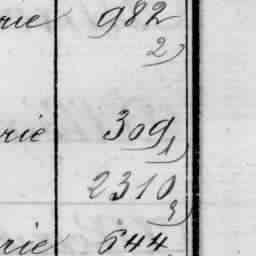 rie 982
2)
rie 309
1)
2310
3)
rie 644